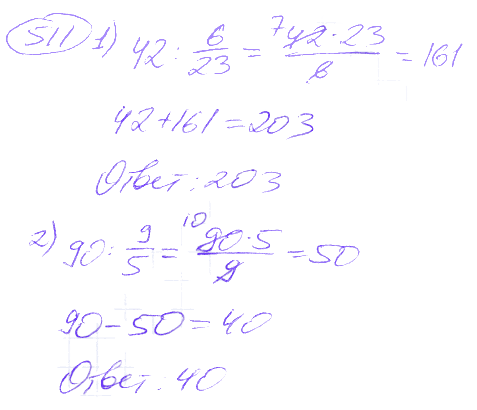 511 1) 42 : 6/23 = 7 42·23/6 = 161
42+161=203
Ответ: 203
2) 90 : 9/5 = 10 90·5/9 = 50
90-50=40
Ответ: 40